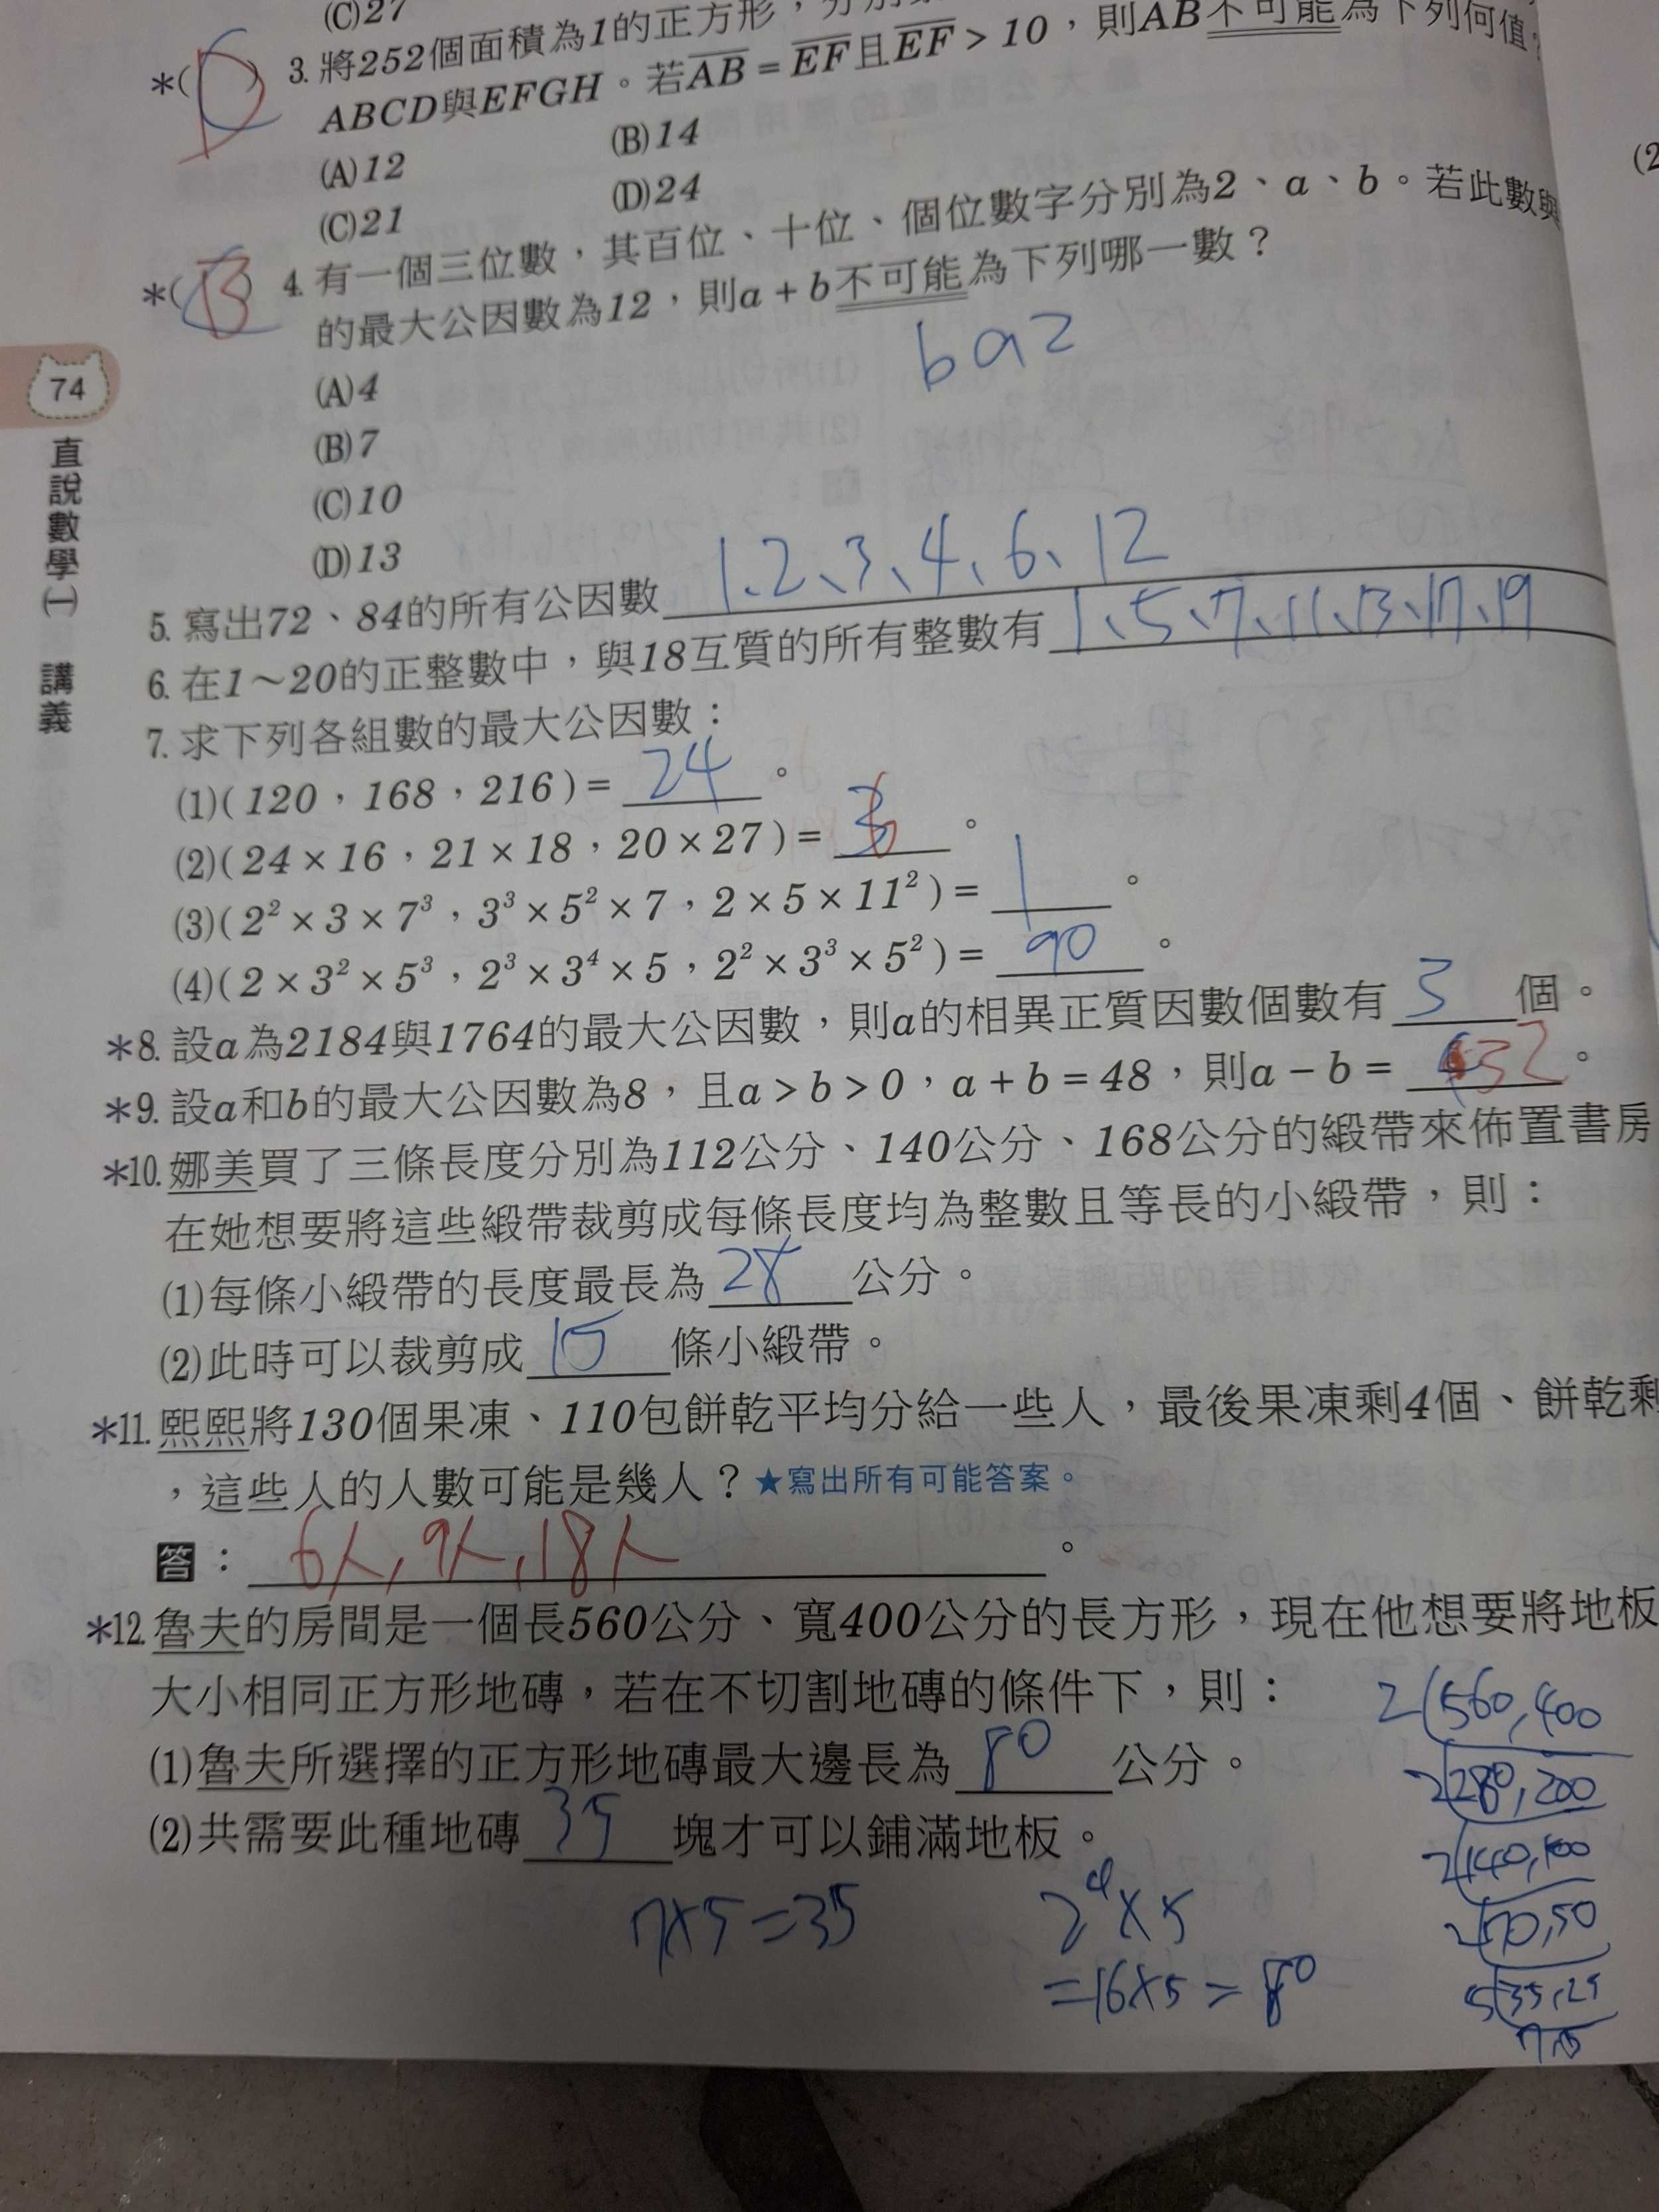 (C)27
*(D) 3. 將252個面積為1的正方形，分別
ABCD與EFGH。若AB=EF且EF>10，則AB不可能為下列何值
(A)12
(B)14
(C)21
(D)24
*(B) 4. 有一個三位數，其百位、十位、個位數字分別為2、a、b。若此數與
的最大公因數為12，則a+b不可能為下列哪一數？
ba2
(A)4
(B)7
(C)10
(D)13
5. 寫出72、84的所有公因數 1、2、3、4、6、12
6. 在1～20的正整數中，與18互質的所有整數有 1、5、7、11、13、17、19
7. 求下列各組數的最大公因數：
(1)(120，168，216)= 24 。
(2)(24×16，21×18，20×27)= 6 。
(3)(2²×3×7³，3³×5²×7，2×5×11²)= 1 。
(4)(2×3²×5³，2³×3⁴×5，2²×3³×5²)= 90 。
*8. 設a為2184與1764的最大公因數，則a的相異正質因數個數有 3 個。
*9. 設a和b的最大公因數為8，且a>b>0，a+b=48，則a－b= 32 。
*10. 娜美買了三條長度分別為112公分、140公分、168公分的緞帶來佈置書房
在她想要將這些緞帶裁剪成每條長度均為整數且等長的小緞帶，則：
(1)每條小緞帶的長度最長為 28 公分。
(2)此時可以裁剪成 15 條小緞帶。
*11. 熙熙將130個果凍、110包餅乾平均分給一些人，最後果凍剩4個、餅乾剩
，這些人的人數可能是幾人？★寫出所有可能答案。
答：6人,9人,18人。
*12. 魯夫的房間是一個長560公分、寬400公分的長方形，現在他想要將地板
大小相同正方形地磚，若在不切割地磚的條件下，則：
(1)魯夫所選擇的正方形地磚最大邊長為 80 公分。
(2)共需要此種地磚 35 塊才可以鋪滿地板。
7×5=35
2⁴×5
=16×5=80
2 560,400
2 280,200
2 140,100
2 70,50
5 35,25
7,5
74
直說數學(一) 講義
(2